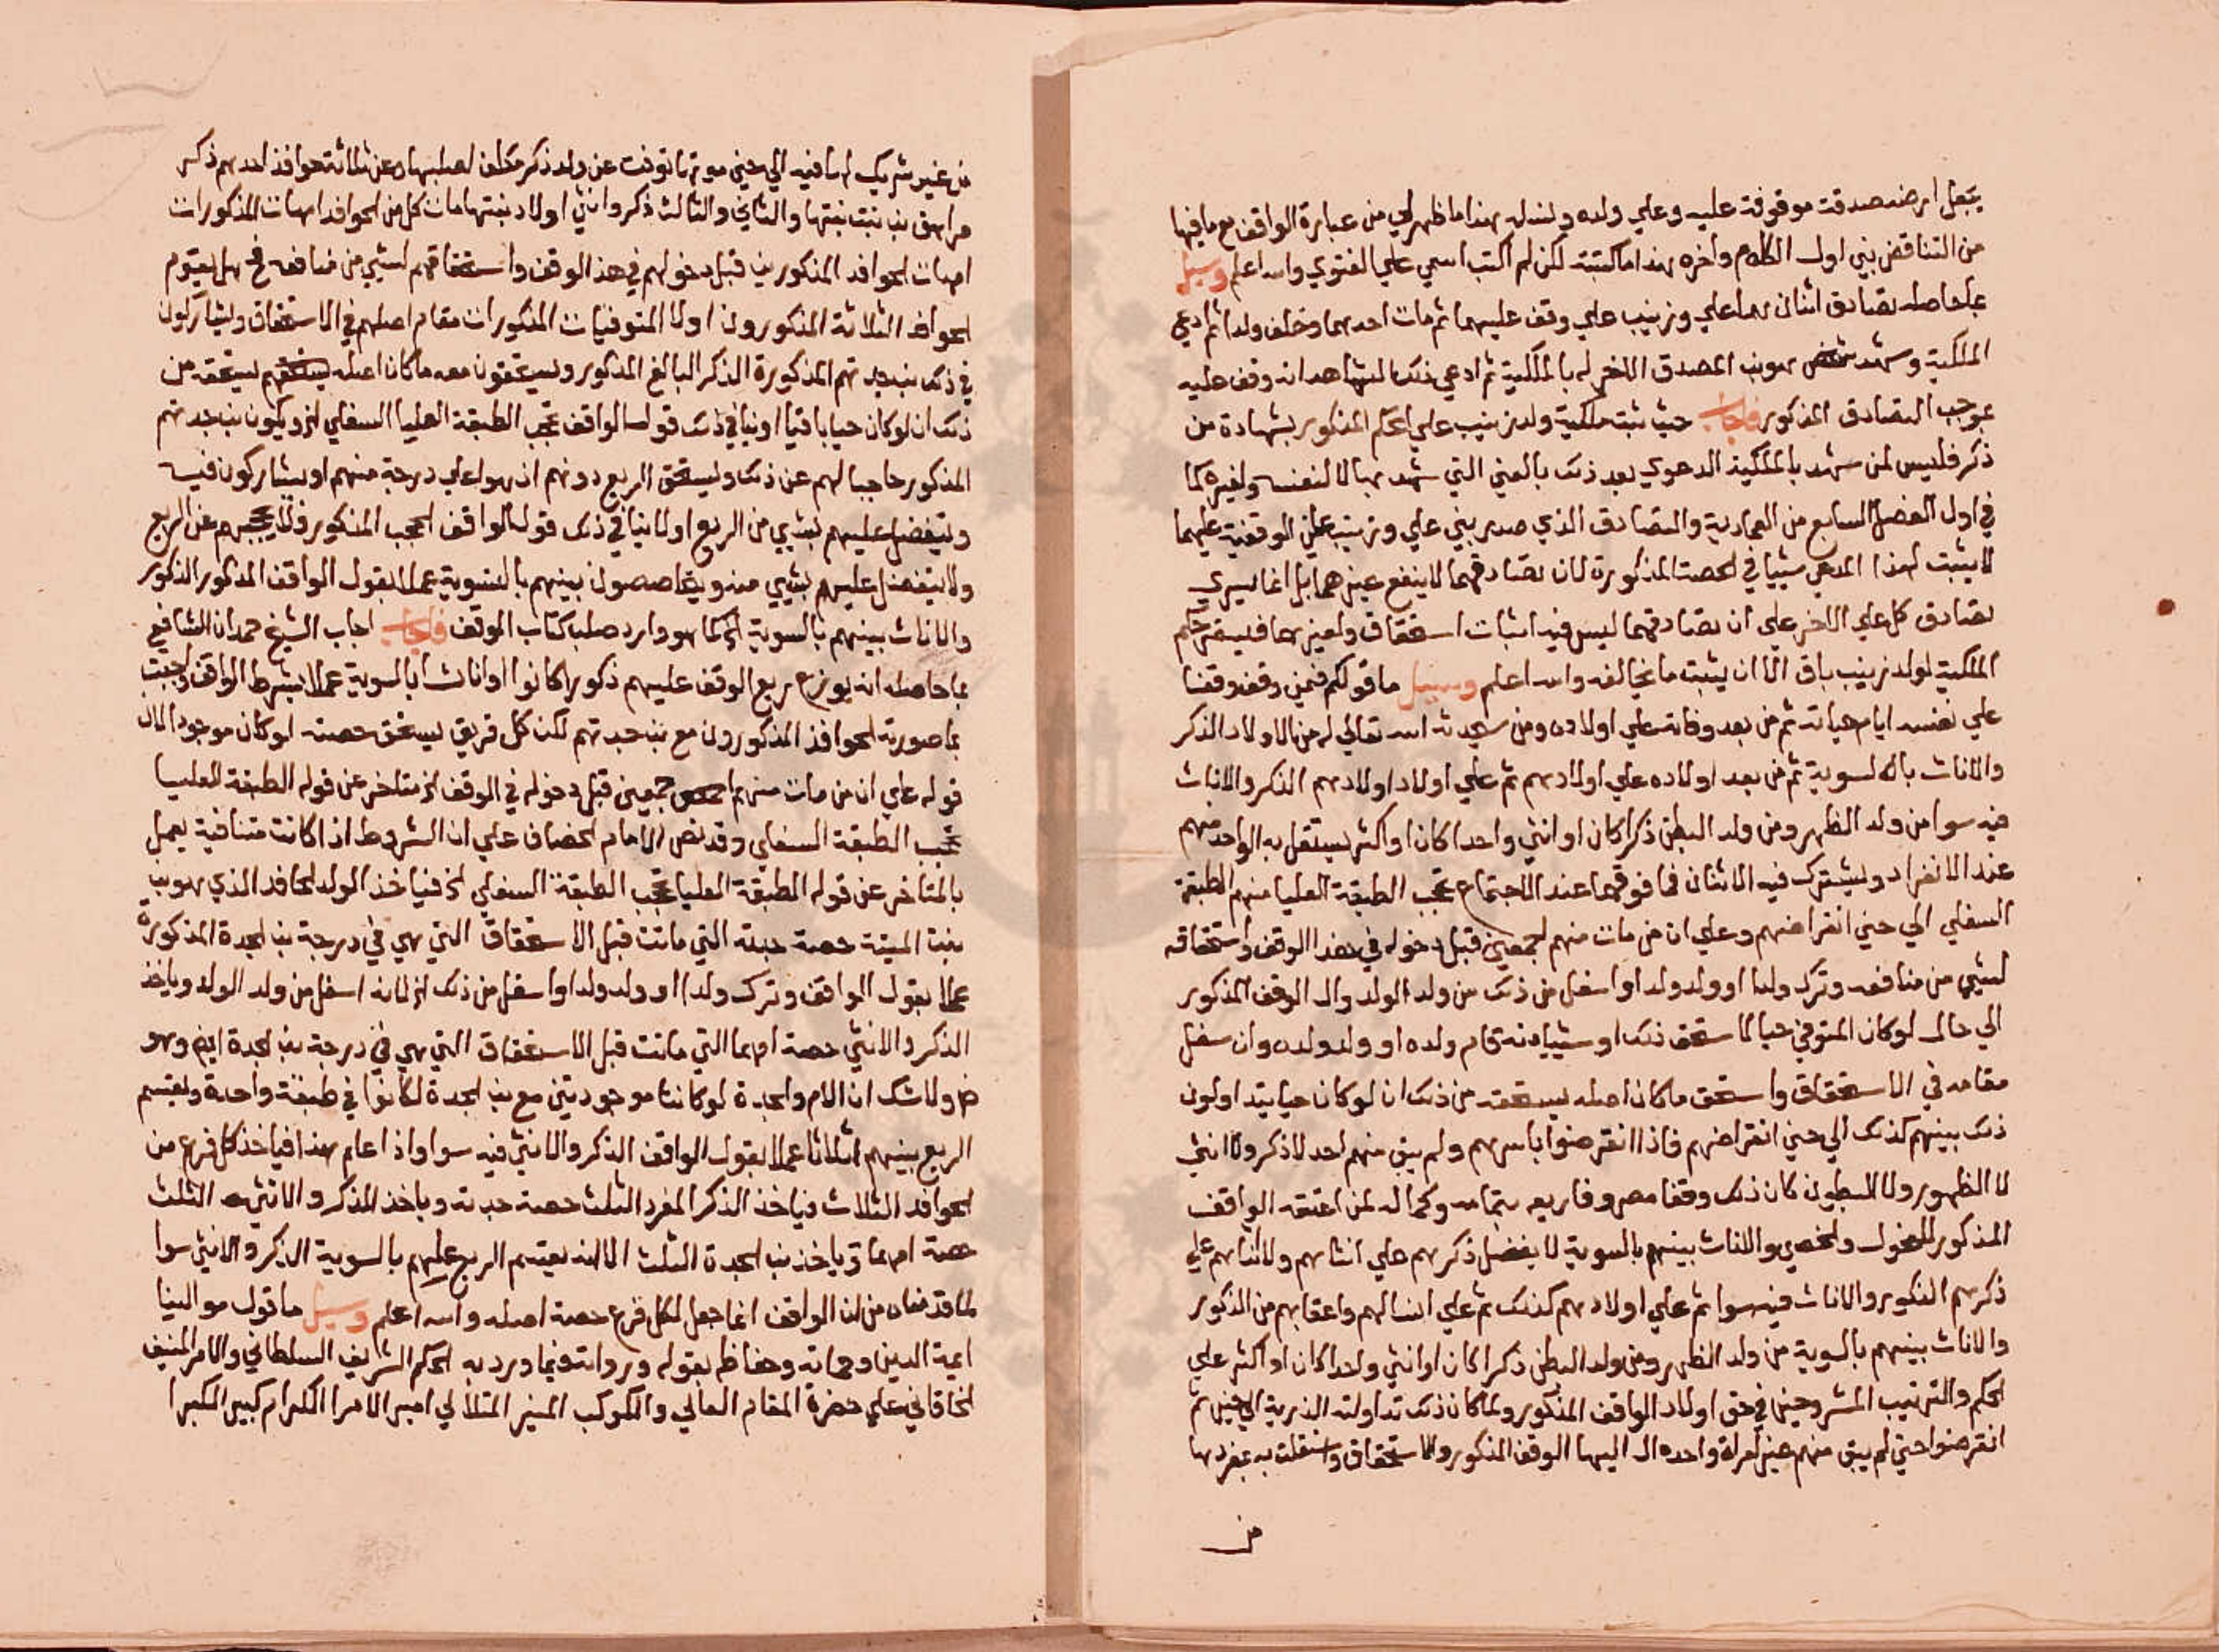 يجعل ارضه صدقة موقوفة عليه وعلي ولده ونسله هذا ما ظهر لي من عبارة الواقف مع ما فيها
من التناقض بين اول الكلام واخره هذا ما كتبته لكن لم اكتب اسمي علي الفتوي والله اعلم وسيل
بما حاصله تصادق اثنان هما علي وزينب علي وقف عليهما ثم مات احدهما وخلف ولدا ثم ادعي
الملكية وشهد شخص هو ابن المصدق الاخر له بالملكية ثم ادعي ذلك الشاهد انه وقف عليه
بموجب التصادق المذكور فاجاب حيث ثبت ملكية ولد زينب علي الحكم المذكور بشهادة من
ذكر فليس لمن شهد بالملكية الدعوي بعد ذلك بالعين التي شهد بها لا لنفسه ولغيره كما
في اول الفصل السابع من العمادية والتصادق الذي صدر بين علي وزينب علي الوقفية عليهما
لا يثبت لهذا المدعي شيا في الحصة المذكورة لان تصادقهما لا ينفع غيرهما بل انما يسري
تصادق كل علي الاخر علي ان تصادقهما ليس فيه اثبات استحقاق ولغيرهما فليبقي حكم
الملكية لولد زينب باق الا ان يثبت ما يخالفه والله اعلم وسيل ما قولكم فيمن وقف وقفا
علي نفسه ايام حياته ثم من بعد وفاته علي اولاده ومن سيحدثه الله تعالي له من الاولاد الذكر
والاناث بالسوية ثم من بعد اولاده علي اولادهم ثم علي اولاد اولادهم الذكر والاناث
فيه سوا من ولد الظهر ومن ولد البطن ذكرا كان او انثي واحدا كان او اكثر يستقل به الواحد منهم
عند الانفراد ويشترك فيه الاثنان فما فوقهما عند الاجتماع تحجب الطبقة العليا منهم الطبقة
السفلي الي حين انقراضهم وعلي ان من مات منهم اجمعين قبل دخوله في هذا الوقف واستحقاقه
لشيي من منافعه وترك ولدا او ولد ولد او اسفل من ذلك من ولد الولد وال الوقف المذكور
الي حال لو كان المتوفي حيا لاستحق ذلك او شيا منه قام ولده او ولد ولده وان سفل
مقامه في الاستحقاق واستحق ما كان اصله يستحقه من ذلك ان لو كان حيا يتداولون
ذلك بينهم كذلك الي حين انقراضهم فاذا انقرضوا باسرهم ولم يبق منهم احد لا ذكر ولا انثي
لا الظهور ولا البطون كان ذلك وقفا مصروفا ريعه بتمامه وكماله لمن اعتقه الواقف
المذكور للفحول والخصي والاناث بينهم بالسوية لا يفضل ذكرهم علي انثاهم ولا انثاهم علي
ذكرهم الذكور والاناث فيه سوا ثم علي اولادهم كذلك ثم علي انسالهم واعقابهم من الذكور
والاناث بينهم بالسوية من ولد الظهر ومن ولد البطن ذكرا كان او انثي واحدا كان او اكثر علي
الحكم والترتيب المشروحين في حق اولاد الواقف المذكور ولما كان ذلك تداولته الذرية الي حين ثم
انقرضوا حتي لم يبق منهم غير امراة واحدة ال اليها الوقف المذكور والاستحقاق واستقلت به بمفردها
من
من غير شريك لها فيه الي حين موتها توفت عن ولد ذكر مخلف لصلبها وعن ثلاثة حوافد احدهم ذكر
مراهق بن بنت بنتها والثاني والثالث ذكر وانثي اولاد بنتها مات كل من الحوافد امهات المذكورات
امهات الحوافد المذكورين قبل دخولهم في هذا الوقف واستحقاقهم لشيي من منافعه فهل يقوم
الحوافد الثلاثة المذكورون اولاد المتوفيات المذكورات مقام اصلهم في الاستحقاق ويشاركون
في ذلك بن جدتهم المذكورة الذكر البالغ المذكور ويستحقون معه ما كان اصله يستحقه من
ذلك ان لو كان حيا باقيا او ينافي ذلك قول الواقف تحجب الطبقة العليا السفلي الخ ويكون بن جدتهم
المذكور حاجبا لهم عن ذلك ويستحق الريع دونهم اذ هو اعلي درجة منهم او يشاركون فيه
ويتفضل عليهم بشيي من الريع او لا ينافي ذلك قول الواقف الحجب المذكور فلا يحجبهم عن الريع
ولا يتفضل عليهم بشيي منه ويتحاصصون بينهم بالسوية عملا بقول الواقف المذكور الذكور
والاناث بينهم بالسوية الخ كما هو وارد صلب كتاب الوقف فاجاب اجاب الشيخ حمدان الشافعي
بما حاصله انه يوزع ريع الوقف عليهم ذكورا كانوا او اناثا بالسوية عملا بشرط الواقف واجبت
بما صورته الحوافد المذكورون مع بن جدتهم لكن كل فريق يستحق حصته لو كان موجود الان
قوله علي ان من مات منهم اجمعين قبل دخوله في الوقف الخ متاخر عن قوله الطبقة العليا
تحجب الطبقة السفلي وقد نص الامام الخصاف علي ان الشروط اذا كانت متنافية يعمل
بالمتاخر عن قوله الطبقة العليا تحجب الطبقة السفلي الخ فياخذ الولد الحافد الذي هو بن
بنت الميتة حصة جدته التي ماتت قبل الاستحقاق التي هي في درجة بن الجدة المذكورة
عملا بقول الواقف وترك ولدا او ولد ولد او اسفل من ذلك الخ لانه اسفل من ولد الولد وياخذ
الذكر والانثي حصة امهما التي ماتت قبل الاستحقاق التي هي في درجة بن الجدة ايضا وهو
ولا شك ان الام والجدة لو كانتا موجودتين مع بن الجدة لكانوا في طبقة واحدة ولقسم
الريع بينهم اثلاثا عملا بقول الواقف الذكر والانثي فيه سوا واذا علم هذا فياخذ كل فرع من
الحوافد الثلاث فياخذ الذكر المفرد الثلث حصة جدته وياخذ الذكر والانثي الثلث
حصة امهما وياخذ بن الجدة الثلث الا انه يقسم الريع عليهم بالسوية الذكر والانثي سوا
لما قدمناه من ان الواقف انما جعل لكل فرع حصة اصله والله اعلم وسيل ما قول موالينا
ايمة الدين وحماته وحفاظ بقوله ورواته فيما ورد به الحكم الشريف السلطاني والامر المنيف
الخاقاني علي حضرة المقام العالي والكوكب المنير المتلالي امير الامرا الكرام كبير الكبرا